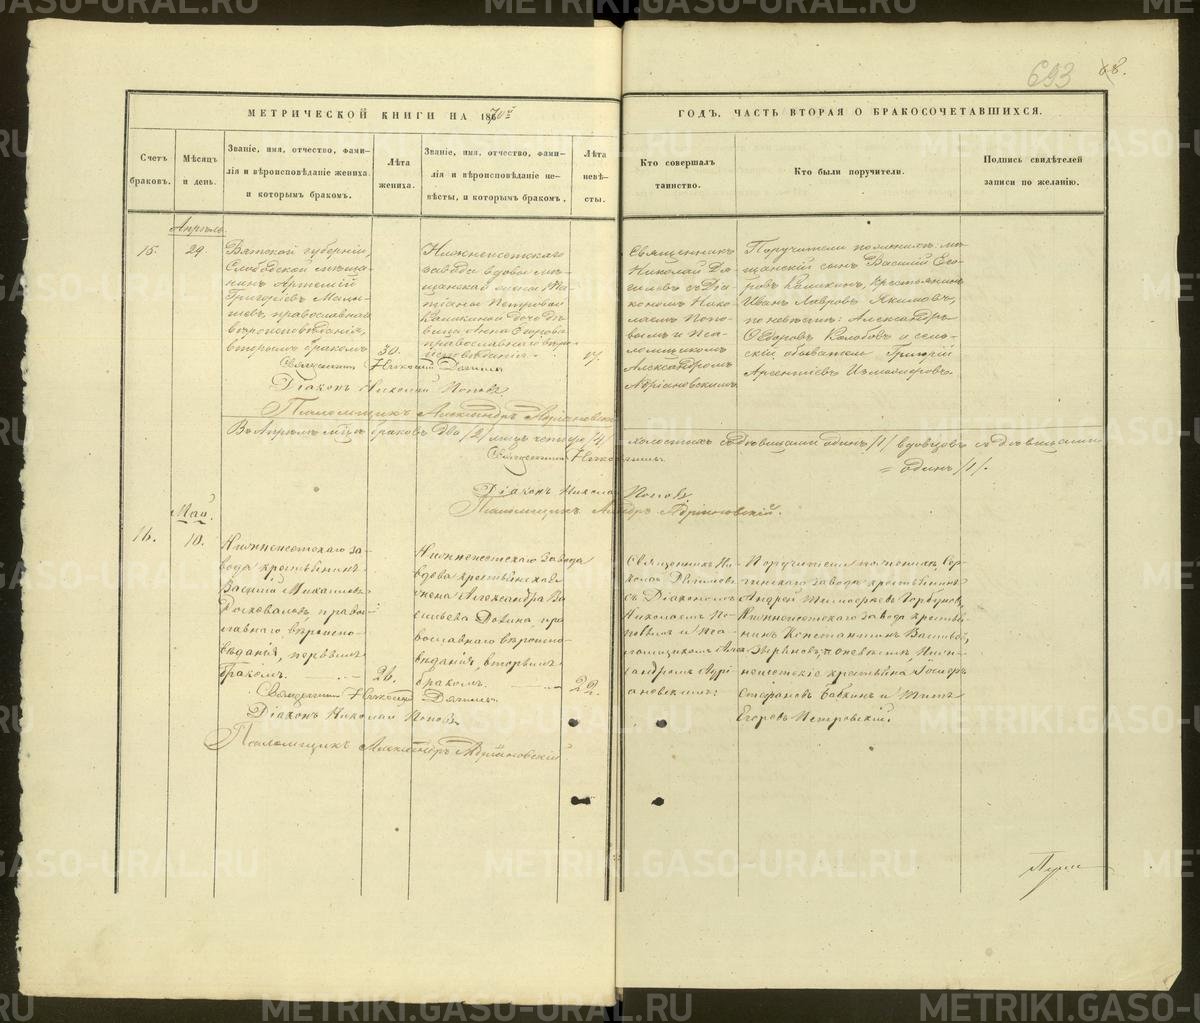 693 68.
МЕТРИЧЕСКОЙ КНИГИ НА 1870й
ГОДЪ, ЧАСТЬ ВТОРАЯ О БРАКОСОЧЕТАВШИХСЯ.
Счетъ
браковъ.
Мѣсяцъ
и день.
Званіе, имя, отчество, фами-
лія и вѣроисповѣданіе жениха
и которымъ бракомъ.
Лѣта
жениха.
Званіе, имя, отчество, фами-
лія и вѣроисповѣданіе не-
вѣсты, и которымъ бракомъ.
Лѣта
невѣ-
сты.
Кто совершалъ
таинство.
Кто были поручители.
Подпись свидѣтелей
записи по желанію.
Апрѣль
15.
29.
Вятской губерніи,
Слободской мѣща-
нинъ Артемій
Григорьевъ
православнаго
вѣроисповѣданія,
вторымъ бракомъ
30.
Нижнеисетскаго
завода вдовы мѣ-
щанской жены Та-
тіаны Петровой
Камкиной дочь дѣ-
вица Анна Егорова
православнаго вѣро-
исповѣданія.
17.
Священникъ
Николай Дя-
гилевъ съ Діа-
кономъ Нико-
лаемъ Попо-
вымъ и Пса-
ломщикомъ
Александромъ
Адріановскимъ
Поручители по женихѣ: мѣ-
щанскій сынъ Василій Его-
ровъ Камкинъ, крестьянинъ
Иванъ Лавровъ Якимовъ,
по невѣстѣ: Александръ
Ѳедоровъ Колобовъ и сель-
скій обыватель Григорій
Арсентіевъ Измоперовъ.
Священникъ Николай Дягилевъ
Діаконъ Николай Поповъ
Псаломщикъ Александръ Адріановскій
Въ Апрѣлѣ м-цѣ браковъ два /2/ лицъ четыре /4/
холостыхъ съ дѣвицами одинъ /1/ вдовцовъ съ дѣвицами
= одинъ /1/.
Священникъ Николай Дягилевъ
Діаконъ Николай Поповъ
Псаломщикъ Александръ Адріановскій.
Май.
16.
10.
Нижнеисетскаго за-
вода крестьянинъ
Василій Михаиловъ
православнаго вѣроиспо-
вѣданія, первымъ
бракомъ.
26.
Нижнеисетскаго завода
вдова крестьянская
жена Александра Ва-
сильева пра-
вославнаго вѣроиспо-
вѣданія, вторымъ
бракомъ.
22.
Священникъ Ни-
колай Дягилевъ
съ Діакономъ
Николаемъ По-
повымъ и Пса-
ломщикомъ Алек-
сандромъ Адрі-
ановскимъ:
Поручители по женихѣ Сер-
гинскаго завода крестьянинъ
Андрей Тимофѣевъ Горбуновъ,
Нижнеисетскаго завода крестья-
нинъ Константинъ Васильевъ
Звѣряковъ, по невѣстѣ Ниж-
неисетскіе крестьяне
Стефановъ Бабкинъ и Титъ
Егоровъ Петровскій.
Священникъ Николай Дягилевъ
Діаконъ Николай Поповъ
Псаломщикъ Александръ Адріановскій
METRIKI.GASO-URAL.RU